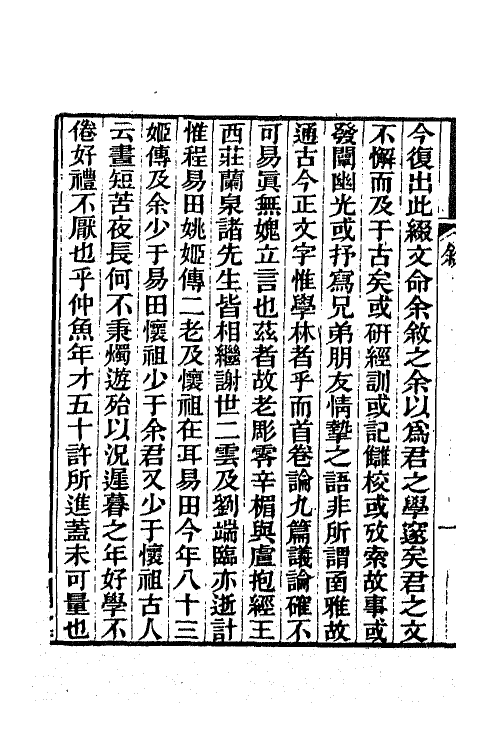 敘
一
今復出此綴文命余敘之余以爲君之學邃矣君之文
不懈而及于古矣或硏經訓或記讎校或攷索故事或
發闡幽光或抒寫兄弟朋友情摯之語非所謂函雅故
通古今正文字惟學林者乎而首卷論九篇議論確不
可易眞無媿立言也茲者故老彫零辛楣與盧抱經王
西莊蘭泉諸先生皆相繼謝世二雲及劉端臨亦逝計
惟程易田姚姬傳二老及懷祖在耳易田今年八十三
姬傳及余少于易田懷祖少于余君又少于懷祖古人
云晝短苦夜長何不秉燭遊殆以況遲暮之年好學不
倦好禮不厭也乎仲魚年才五十許所進蓋未可量也